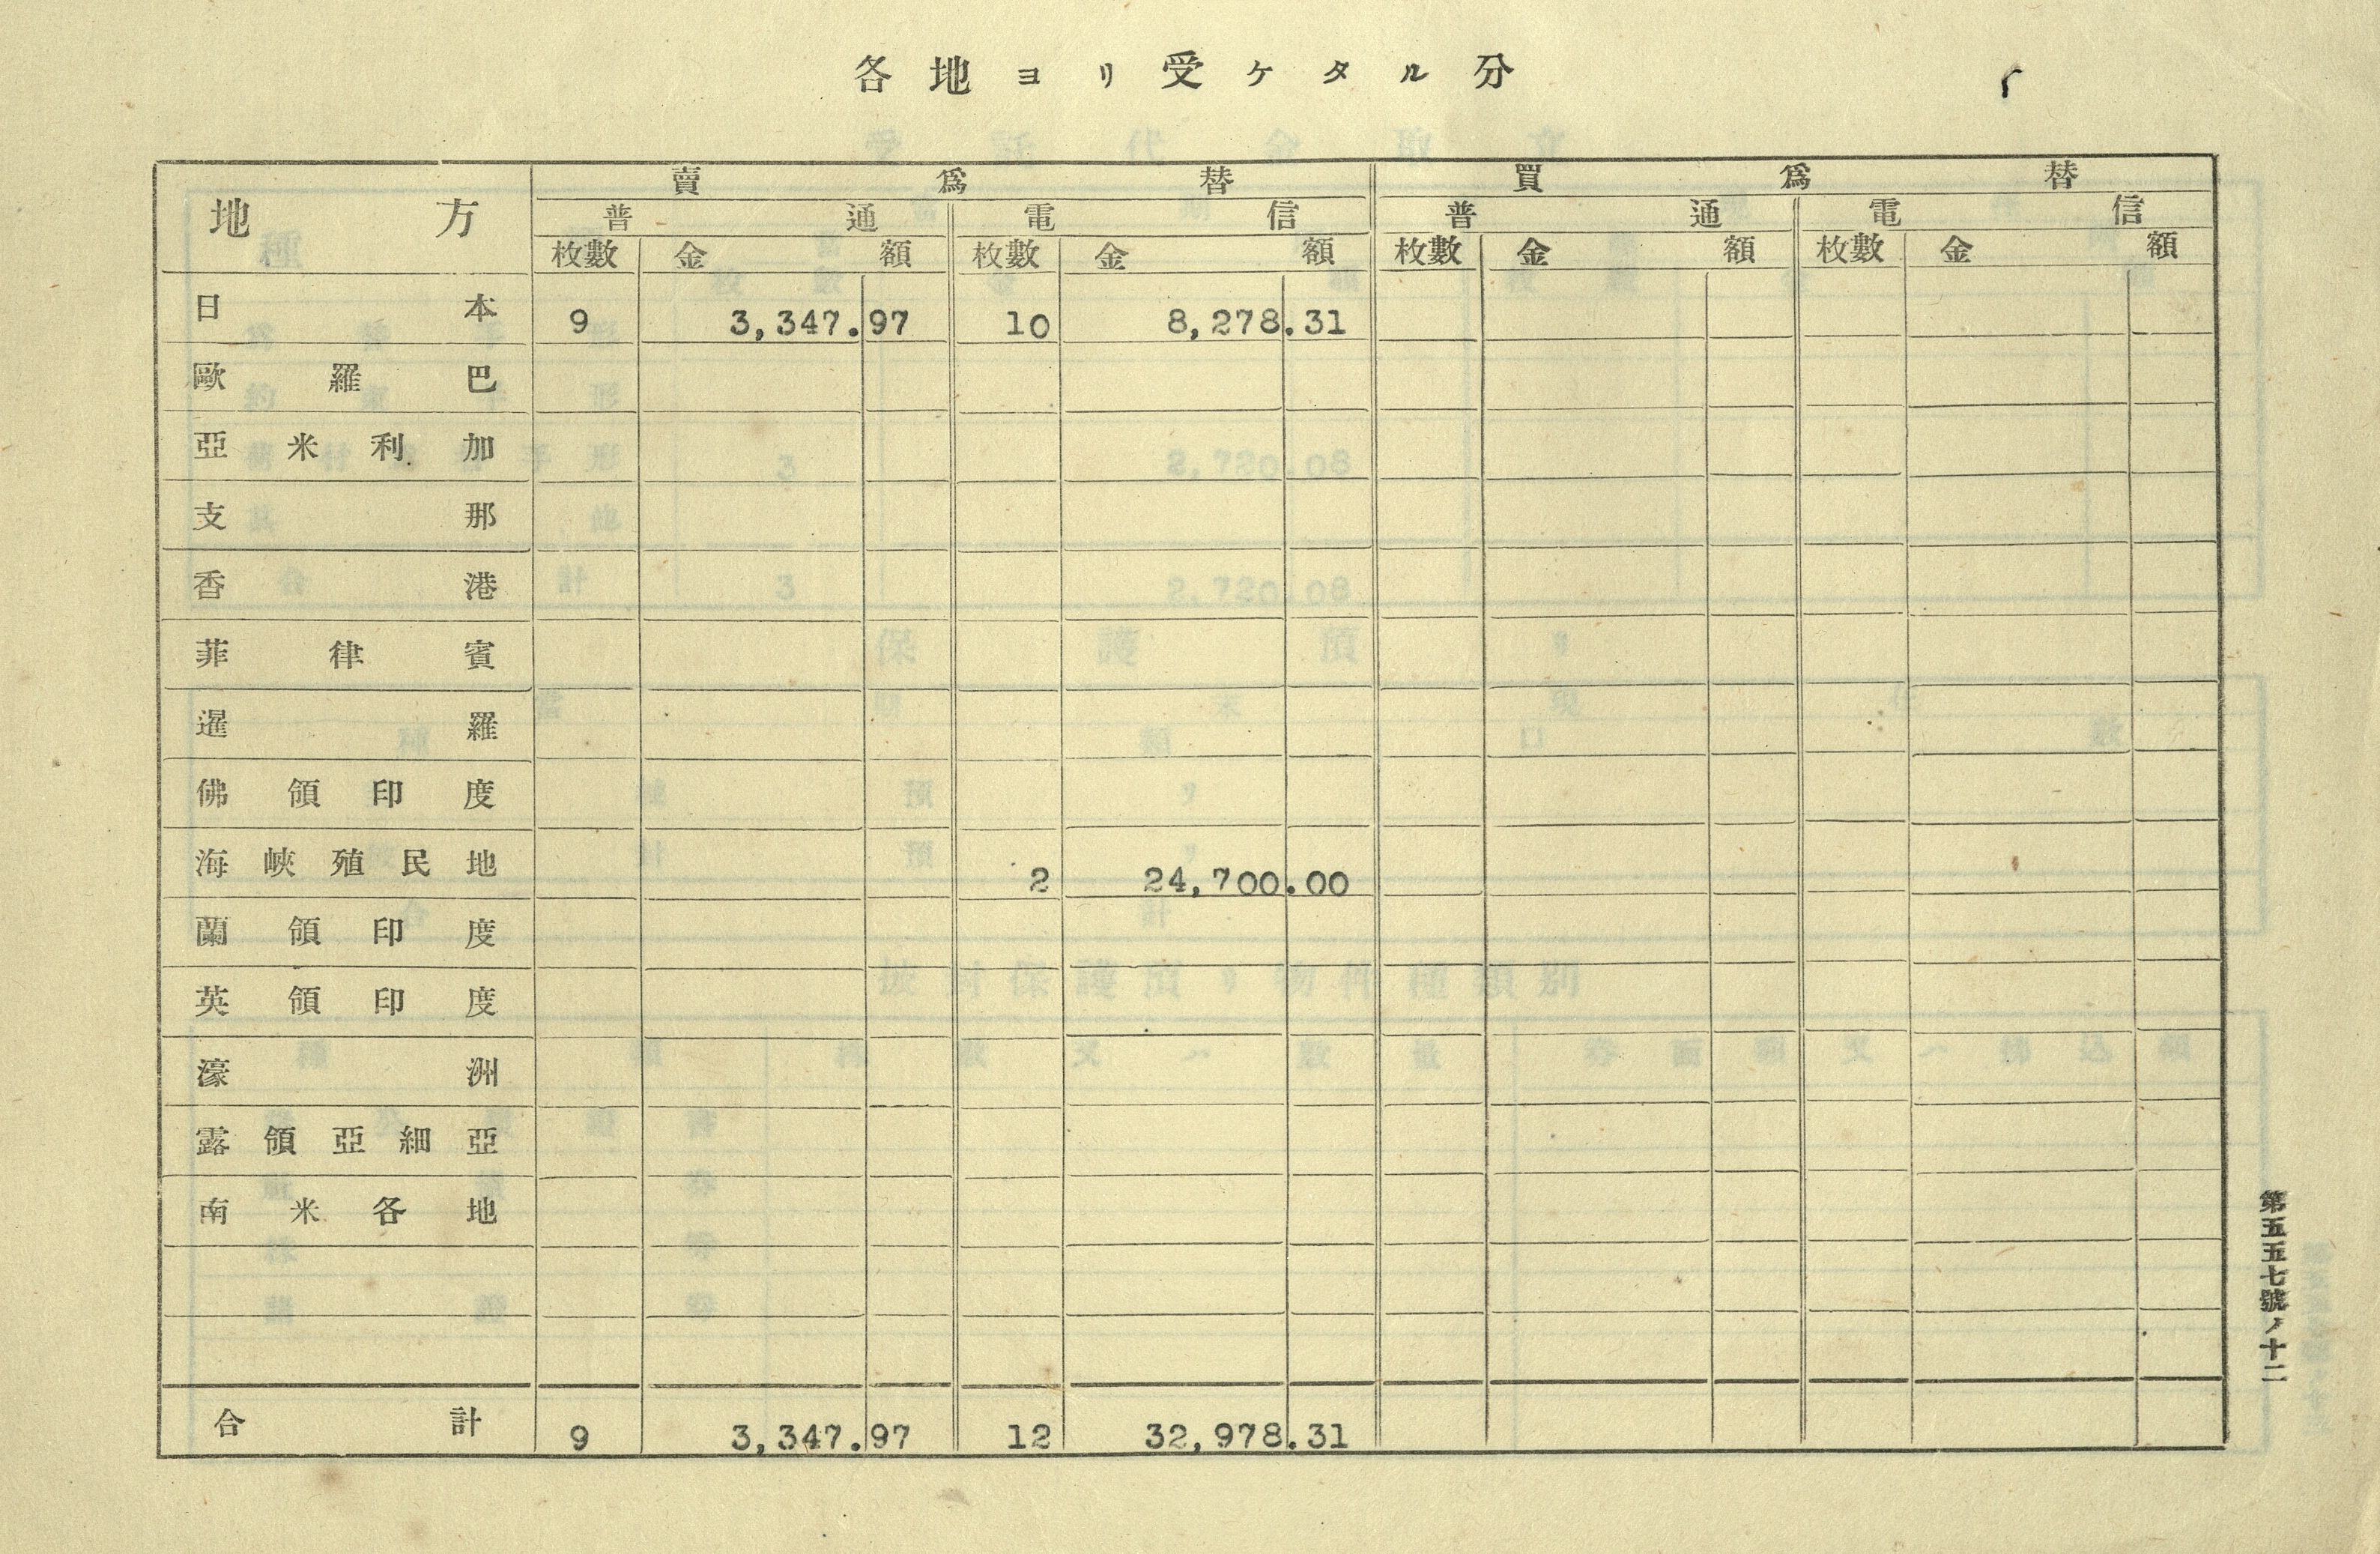 各地ヨリ受ケタル分
地方 賣爲替 買爲替
普通 電信 普通 電信
枚數 金額 枚數 金額 枚數 金額 枚數 金額
日本 9 3,347.97 10 8,278.31
歐羅巴
亞米利加
支那
香港
菲律賓
暹羅
佛領印度
海峽殖民地 2 24,700.00
蘭領印度
英領印度
濠洲
露領亞細亞
南米各地
合計 9 3,347.97 12 32,978.31
第五五七號ノ十二